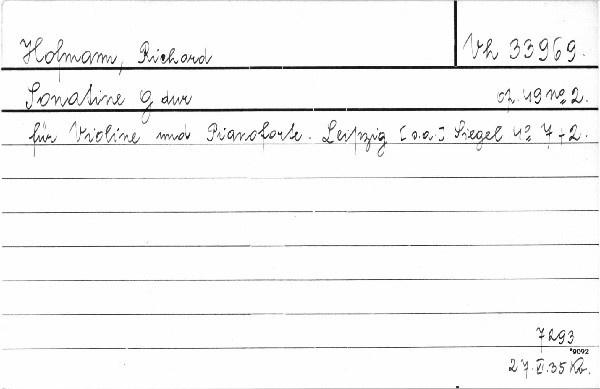 Hofmann, Richard
Vh 33969.
Sonatine G dur op. 49 No 2.
für Violine und Pianoforte. Leipzig [o.a.] Siegel 4° 7+2.
7293
*9092
27. II. 35 Kb.